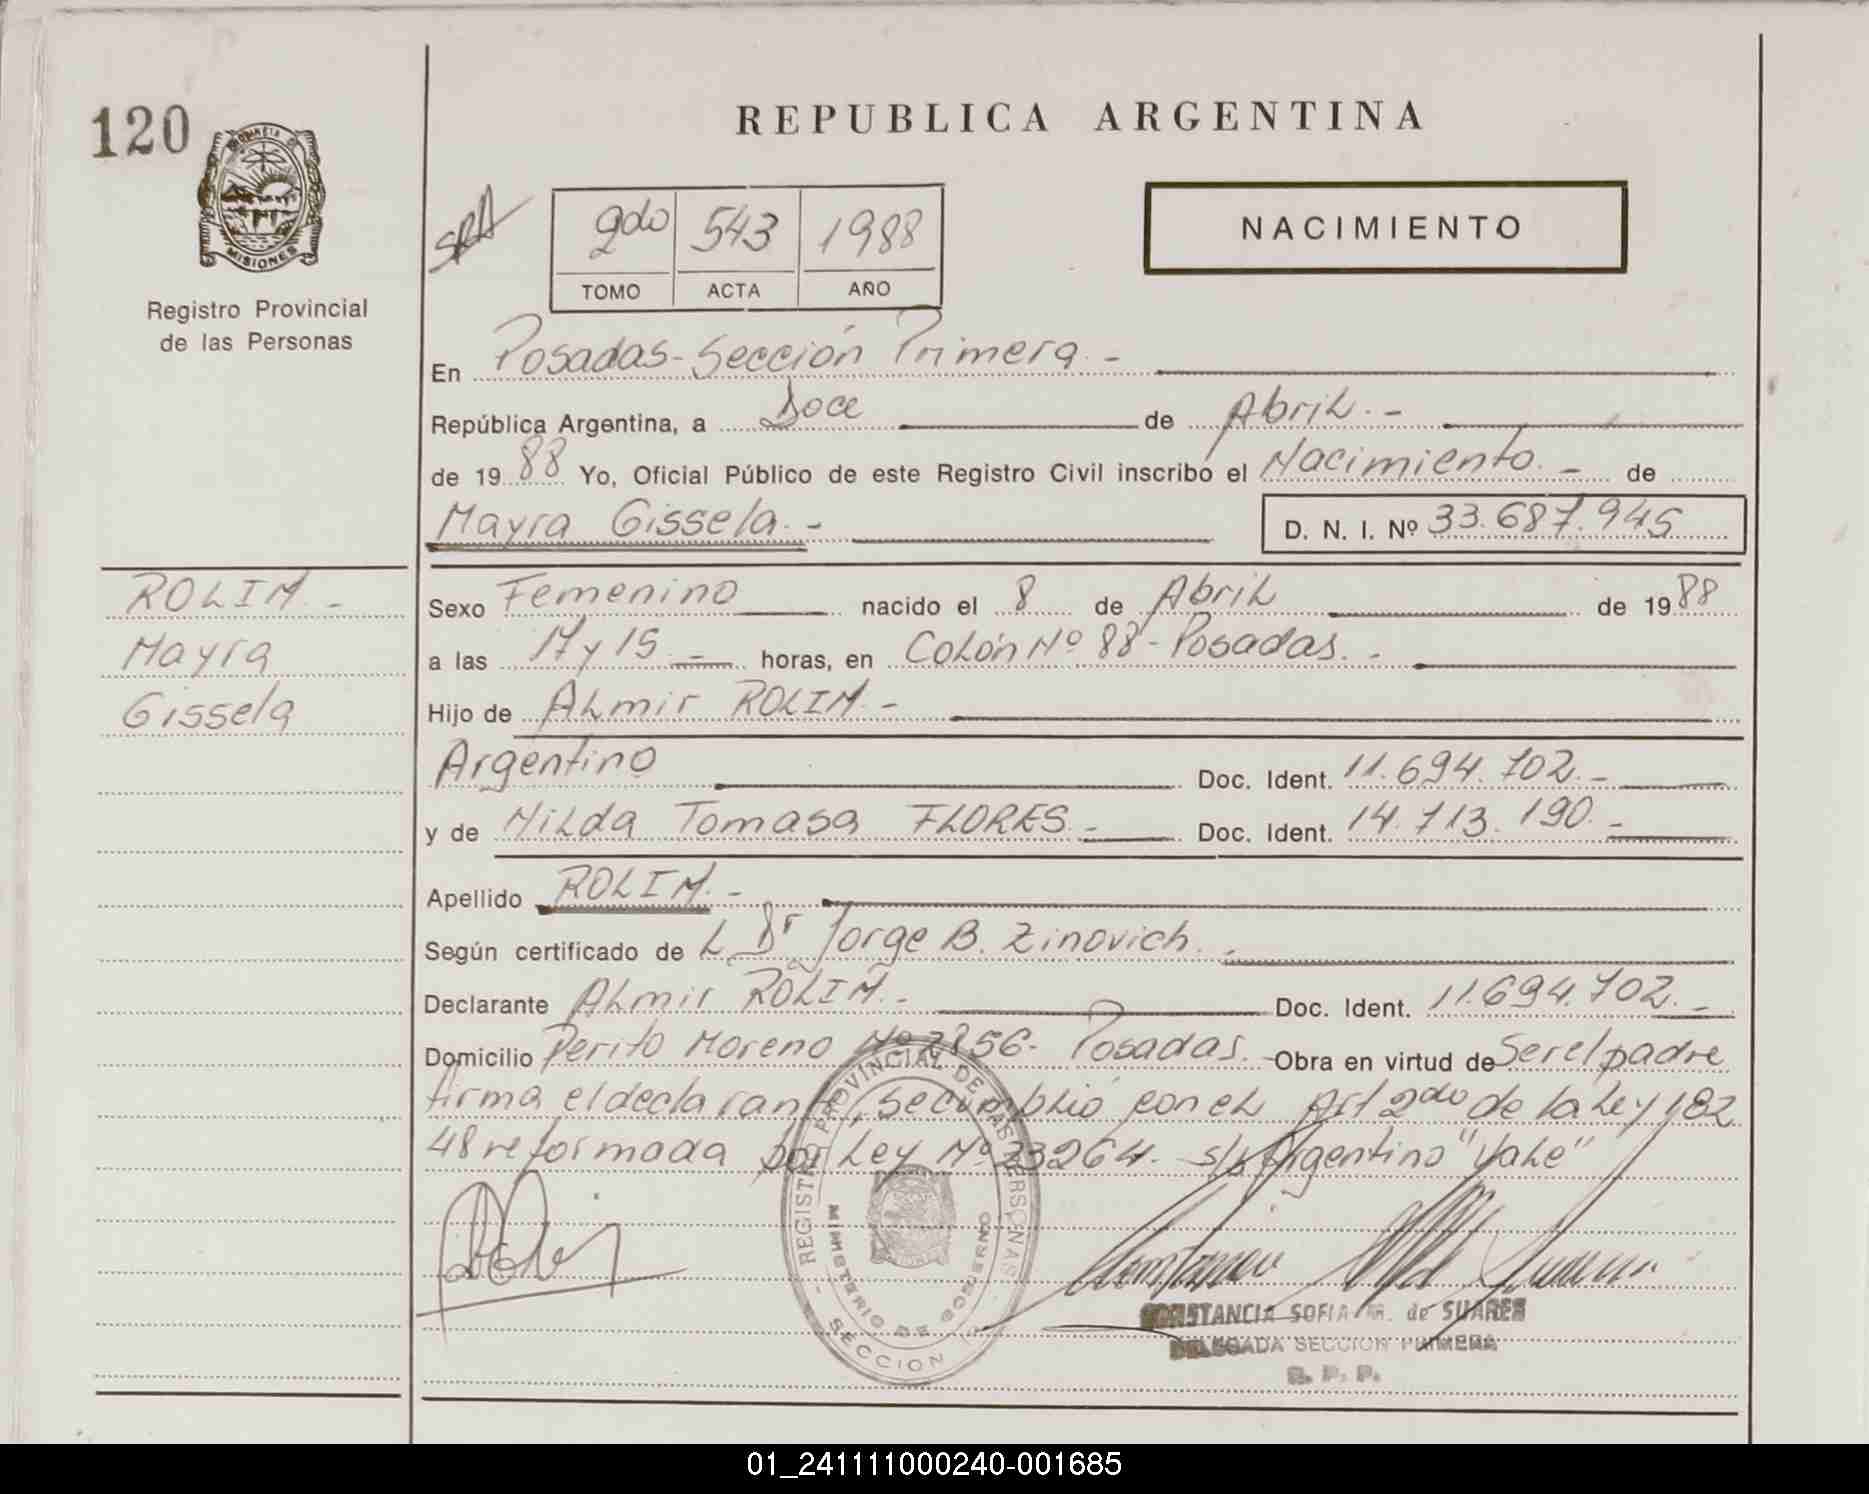 120
PROVINCIA DE
MISIONES
Registro Provincial
de las Personas
REPUBLICA ARGENTINA
2do 543 1988
TOMO ACTA AÑO
NACIMIENTO
En Posadas-Sección Primera.-
República Argentina, a Doce de Abril.-
de 1988 Yo, Oficial Público de este Registro Civil inscribo el Nacimiento.- de
Mayra Gissela.-
D. N. I. Nº 33.687.945
ROLIM.-
Mayra
Gissela
Sexo Femenino nacido el 8 de Abril de 1988
a las 17 y 15 - horas, en Colón Nº 88-Posadas.-
Hijo de Almir ROLIM.-
Argentino Doc. Ident. 11.694.702.-
y de Nilda Tomasa FLORES.- Doc. Ident. 14.713.190.-
Apellido ROLIM.-
Según certificado de L Dr Jorge B. Zinovich.-
Declarante Almir ROLIM.- Doc. Ident. 11.694.702.-
Domicilio Perito Moreno Nº 2856- Posadas. - Obra en virtud de Ser el padre
firma el declarante, se cumplió con el Art 2do de la Ley 182
48 reformada por Ley Nº 23264. s/b Argentino "Vale"
REGISTRO PROVINCIAL DE LAS PERSONAS
MINISTERIO DE GOBIERNO
SECCION
CONSTANCIA SOFIA M. de SUARES
DELEGADA SECCION PRIMERA
R. P. P.
01_241111000240-001685